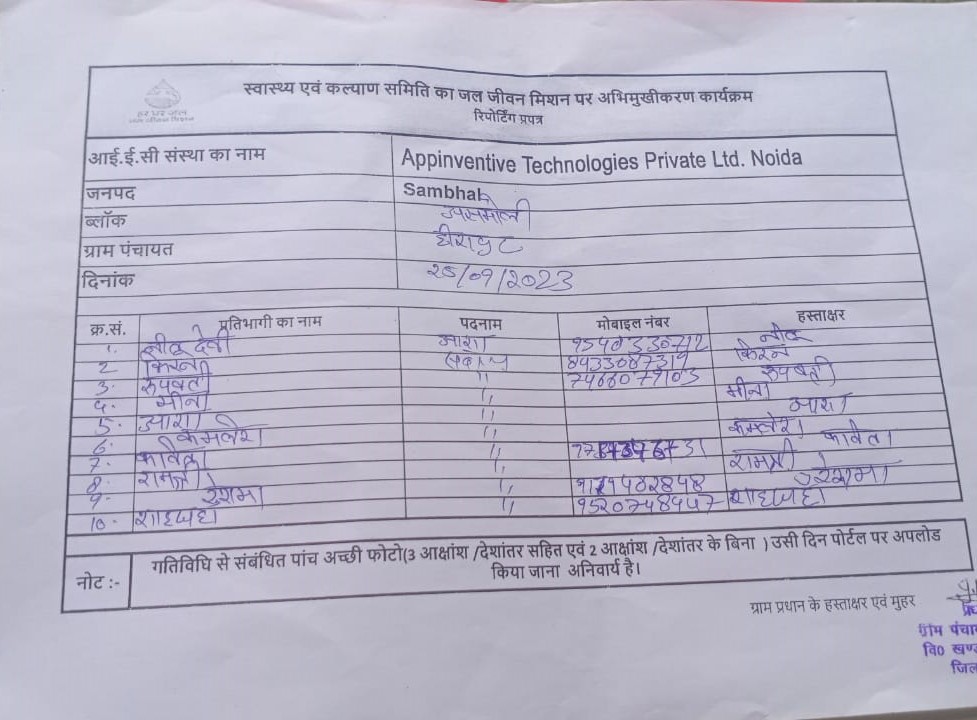 हर घर जल
जल जीवन मिशन
स्वास्थ्य एवं कल्याण समिति का जल जीवन मिशन पर अभिमुखीकरण कार्यक्रम
रिपोर्टिंग प्रपत्र
आई.ई.सी संस्था का नाम Appinventive Technologies Private Ltd. Noida
जनपद Sambhal
ब्लॉक असमोली
ग्राम पंचायत
दिनांक 25/09/2023
क्र.सं. प्रतिभागी का नाम पदनाम मोबाइल नंबर हस्ताक्षर
1. नीलू देवी आशा 9540330712 नीलू
2 किरन सदस्य 8433087319 किरन
3. रूपवती " 7466079103 रूपवती
4. मीना " मीना
5. आशा " आशा
6. कमलेश " कमलेश
7. कविता " कविता
8. रामश्री " रामश्री
9. रेशमा " 9129402848 रेशमा
10. शाहजहां " 9520748447 शाहजहां
नोट :- गतिविधि से संबंधित पांच अच्छी फोटो(3 आक्षांश /देशांतर सहित एवं 2 आक्षांश /देशांतर के बिना ) उसी दिन पोर्टल पर अपलोड
किया जाना अनिवार्य है।
ग्राम प्रधान के हस्ताक्षर एवं मुहर
ग्राम पंचा
वि0 खण्ड
जिल